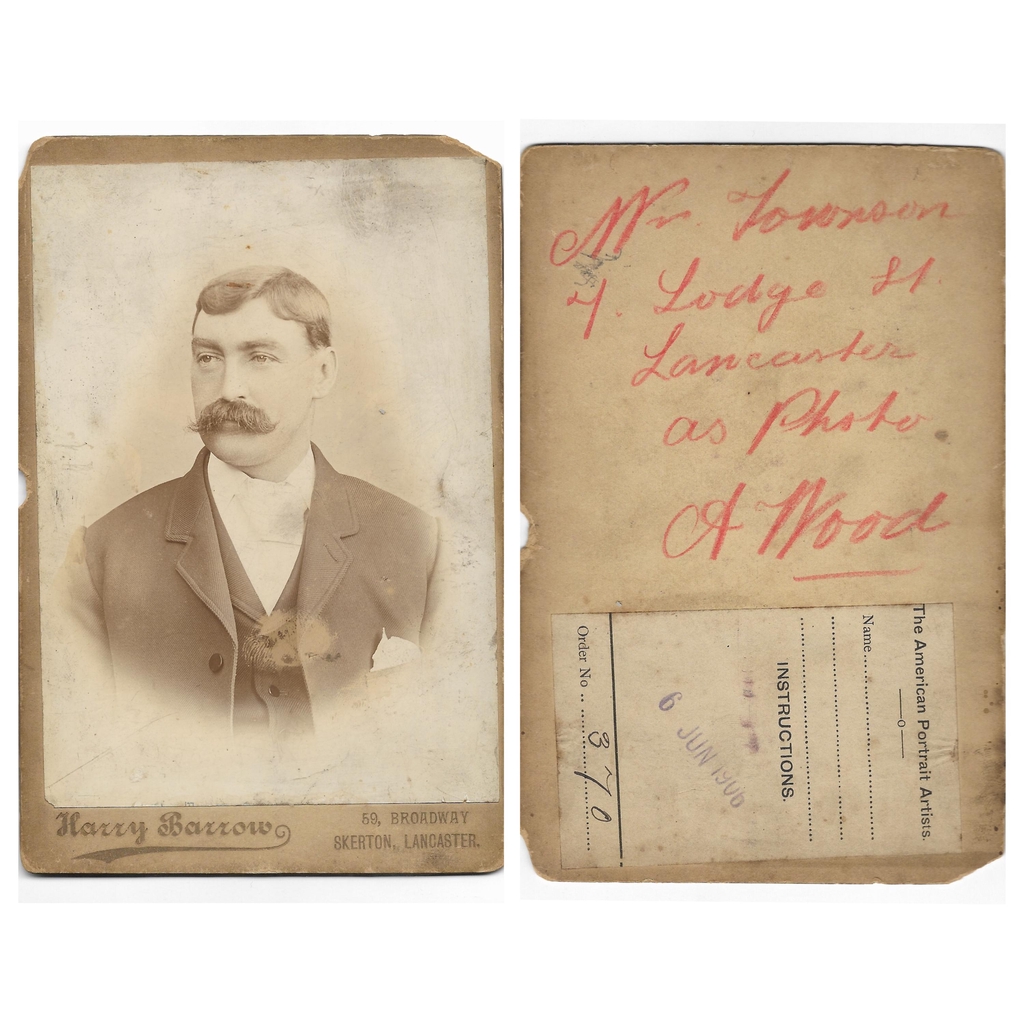 Harry Barrow
59, BROADWAY
SKERTON, LANCASTER.
Mr Townson
4. Lodge St.
Lancaster
as Photo
A Wood
The American Portrait Artists.
—o—
Name
INSTRUCTIONS.
6 JUN 1906
Order No 370